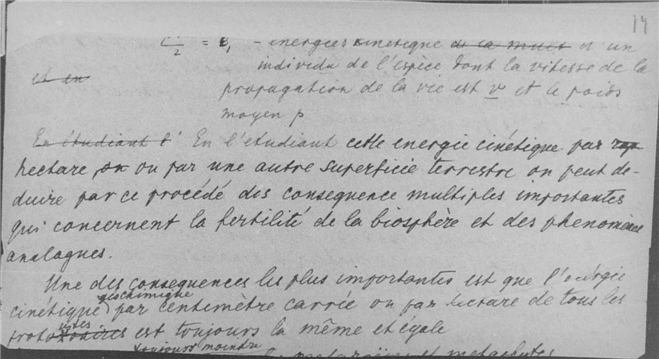 14
= e, - énergies kinetique de la mult d'un
individu de l'espèce dont la vitesse de la
et en
propagation de la vie est v et le poids
moyen p
En étudiant l' En l'etudiant cette energie cinétique par
hectare, ou ou par une autre superficie terrestre on peut de-
duire par ce procédé des consequence multiples importantes
qui concernent la fertilité de la biosphère et des phenomènes
analogues.
Une des consequences les plus importantes est que l'energie
geochimique
cinétique par centimètre carrée ou par hectare de tous les
istes
est toujours la même et egale
toujours moindre
et metaphytes